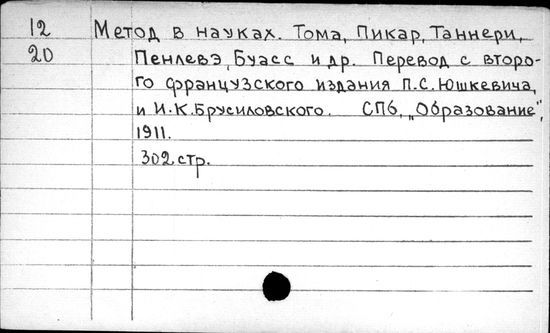 12 Метод в науках. Тома, Пикар, Таннери,
20 Пенлевэ, Буасс и др. Перевод с второ-
го французского издания П.С. Юшкевича
и И.К. Брусиловского. СПб, „Образование",
1911.
302 стр.